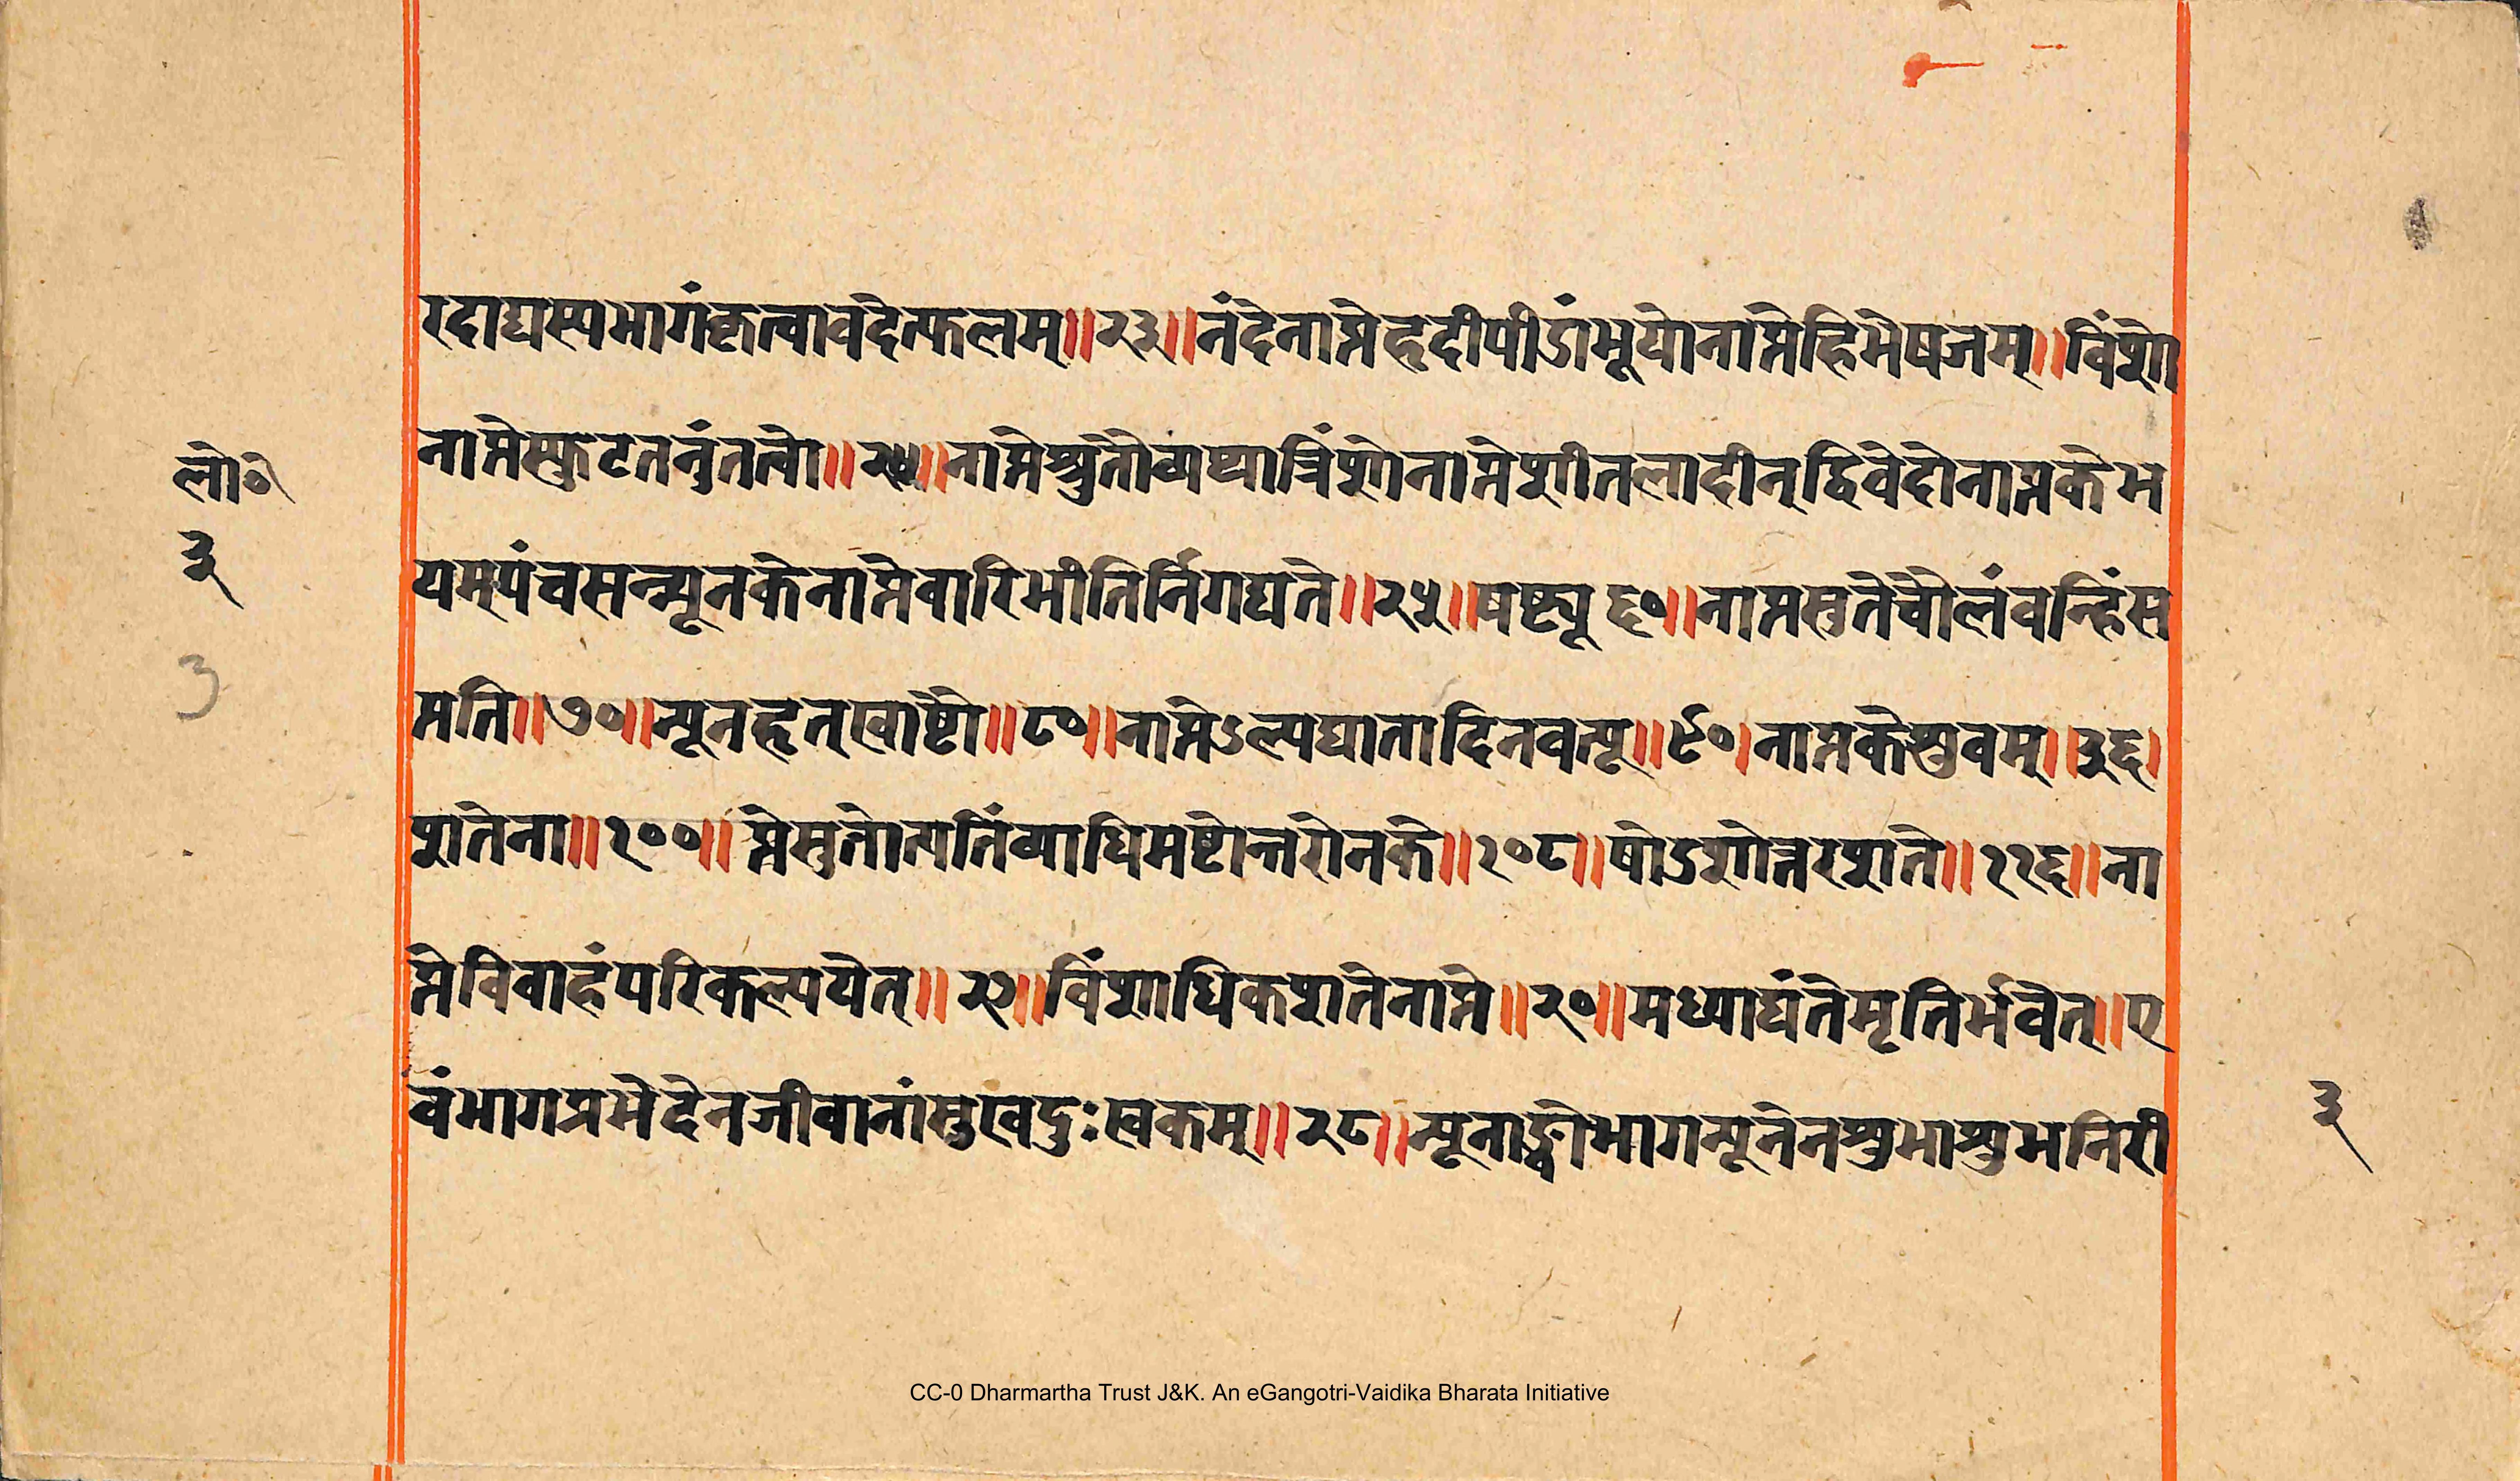 रदाद्यस्यभागंकृत्वावदेत्फलम्॥२३॥नंदेनाप्तेहृदीपीडांभूयोनाप्तेहिभेषजम्॥विंशो
नाप्तेस्फुटतनुंतलो॥२४॥नाप्तेश्रुतौवाष्यात्रिंशोनाप्तेशीतलादीन्द्विवेदोनाप्तकेभ
लो॰
३
यम्पंचसन्यूनकेनाप्तेवारिभीतिर्निगद्यते॥२५॥षष्ट्यू६०॥नाप्तसुतेचौलंवन्हिंस
3
प्तति॥७०॥न्यूनहृत्खाष्टौ॥८०॥नाप्तेऽल्पघातादिनवत्यू॥९०।नाप्तकेस्रुवम्॥३६।
शतेना॥१००॥प्तेसुतोत्पतिंव्याधिमष्टोत्तरोनके॥१०८॥षोडशोत्तरशते॥११६॥ना
प्तेविवाहंपरिकल्पयेत्॥२७॥विंशाधिकशतेनाप्ते॥२०॥मध्याद्यंतेमृतिर्भवेत्॥ए
वंभागप्रभेदेनजीवानांसुखदुःखकम्॥२८॥न्यूनाङ्कोभागन्यूनेनशुभाशुभनिरी
३
CC-0 Dharmartha Trust J&K. An eGangotri-Vaidika Bharata Initiative